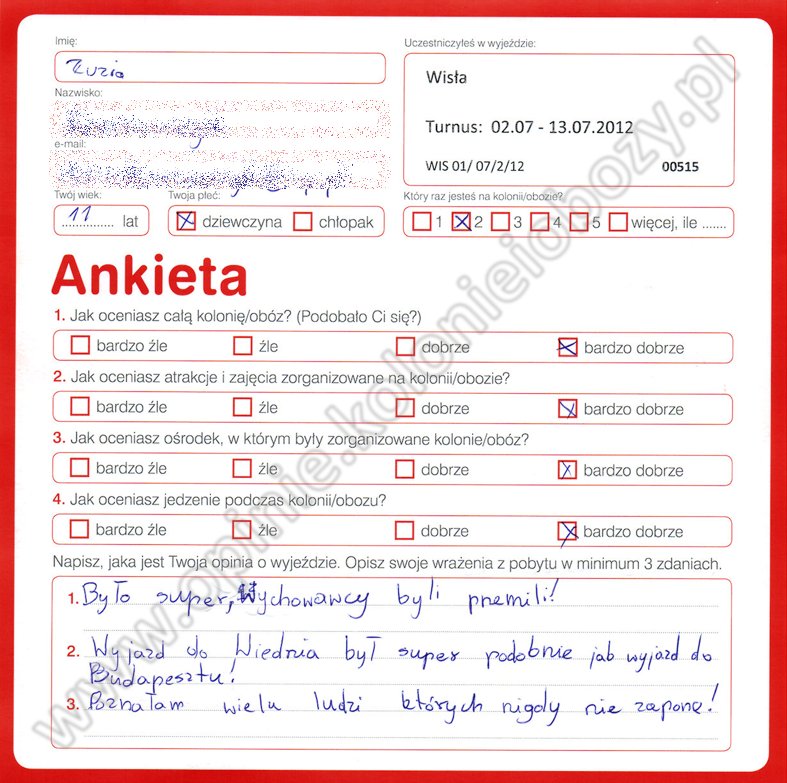 Imię:
Zuzia
Nazwisko:
e-mail:
Twój wiek:
11 lat
Twoja płeć:
dziewczyna chłopak
Uczestniczyłeś w wyjeździe:
Wisła
Turnus: 02.07 - 13.07.2012
WIS 01/ 07/2/12 00515
Który raz jesteś na kolonii/obozie?
1 2 3 4 5 więcej, ile .......
Ankieta
1. Jak oceniasz całą kolonię/obóz? (Podobało Ci się?)
bardzo źle źle dobrze bardzo dobrze
2. Jak oceniasz atrakcje i zajęcia zorganizowane na kolonii/obozie?
bardzo źle źle dobrze bardzo dobrze
3. Jak oceniasz ośrodek, w którym były zorganizowane kolonie/obóz?
bardzo źle źle dobrze bardzo dobrze
4. Jak oceniasz jedzenie podczas kolonii/obozu?
bardzo źle źle dobrze bardzo dobrze
Napisz, jaka jest Twoja opinia o wyjeździe. Opisz swoje wrażenia z pobytu w minimum 3 zdaniach.
1. Było super, Wychowawcy byli premili!
2. Wyjazd do Wiednia był super podobnie jab wyjazd do
Budapesztu!
3. Poznałam wielu ludzi których nigdy nie zaponę!
www.opinie.kolonieiobozy.pl